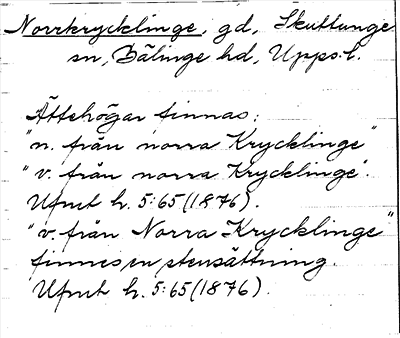 Norrkrycklinge, gd, Skuttunge
sn, Bälinge hd, Upps. l.
Ättehögar finnas:
"n. från norra Krycklinge"
"v. från norra Krycklinge".
Ufmt h. 5:65 (1876).
"v. från Norra Krycklinge"
finnes en stensättning.
Ufmt h. 5:65 (1876).